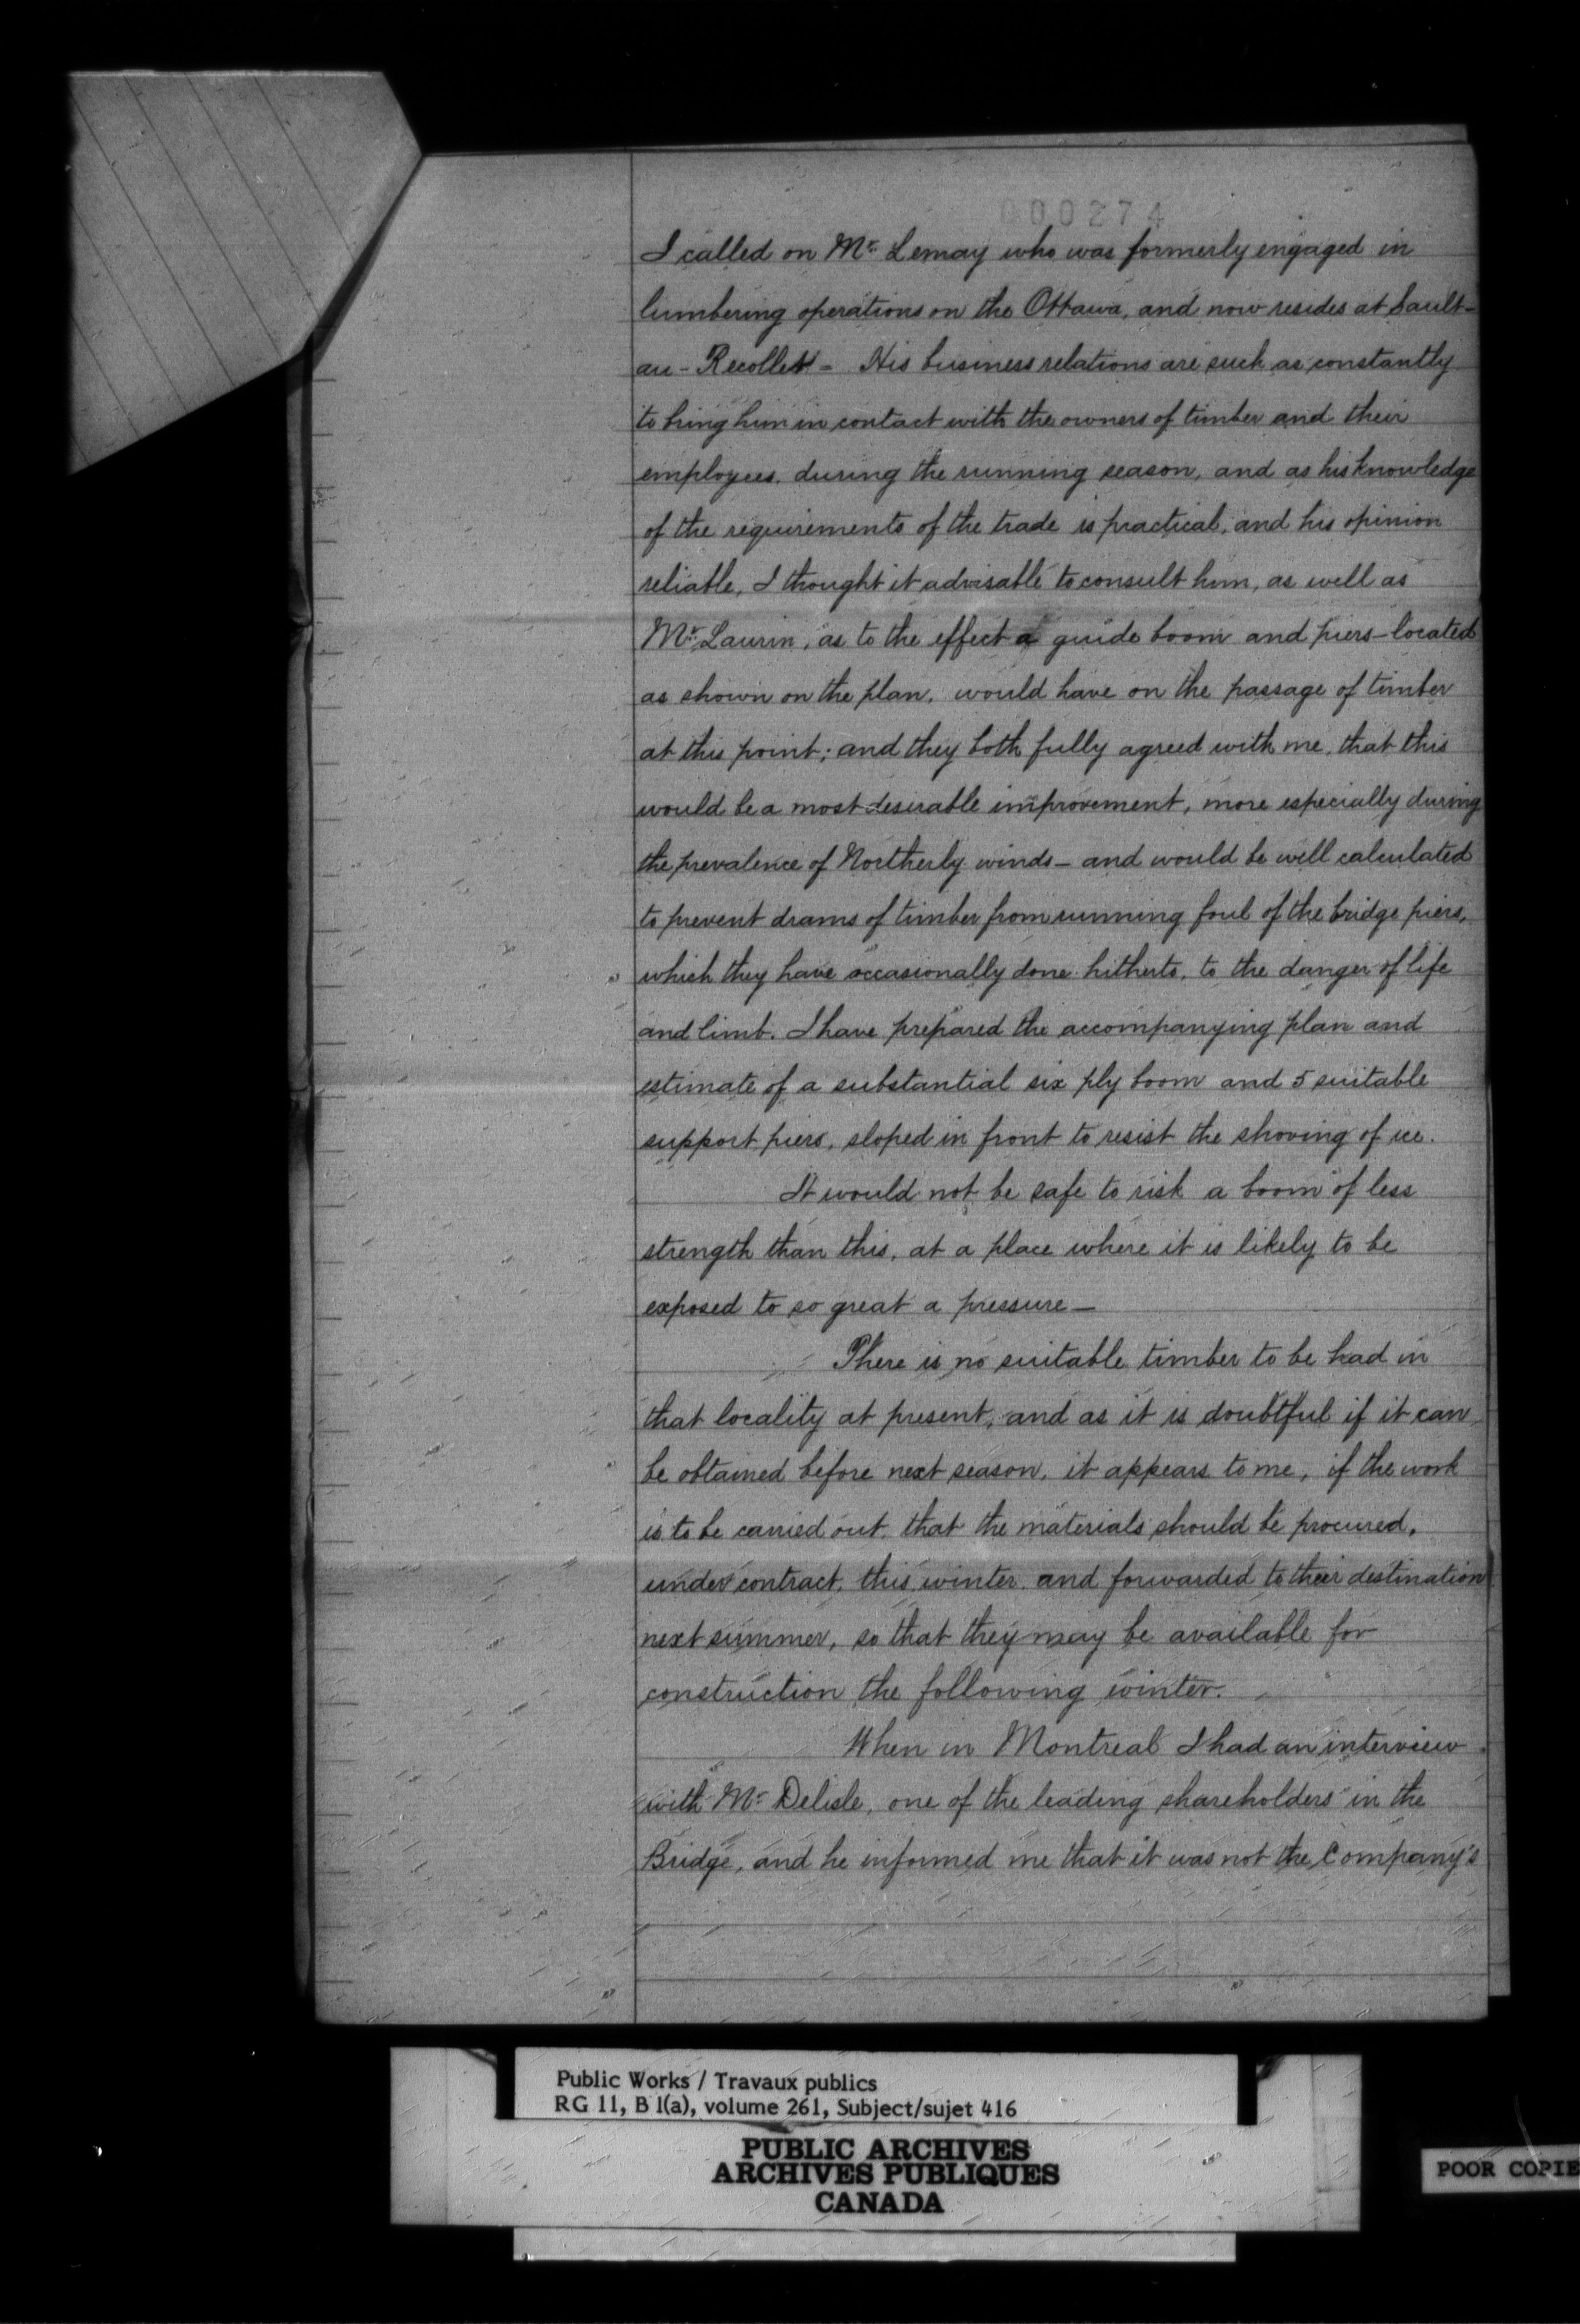 000274
I called on Mr. Lemay who was formerly engaged in
lumbering operations on the Ottawa, and now resides at Sault-
au-Recollet - His business relations are such as constantly
to bring him in contact with the owners of timber and their
employees, during the running season, and as his knowledge
of the requirements of the trade is practical, and his opinion
reliable, I thought it advisable to consult him, as well as
Mr. Laurin, as to the effect a guide boom and piers - located
as shown on the plan, would have on the passage of timber
at this point; and they both fully agreed with me, that this
would be a most desirable improvement, more especially during
the prevalence of Northerly winds - and would be well calculated
to prevent drams of timber from running foul of the bridge piers,
which they have occasionally done hitherto, to the danger of life
and limb. I have prepared the accompanying plan and
estimate of a substantial six ply boom and 5 suitable
support piers, sloped in front to resist the shoving of ice.
It would not be safe to risk a boom of less
strength than this, at a place where it is likely to be
exposed to so great a pressure -
There is no suitable timber to be had in
that locality at present, and as it is doubtful if it can
be obtained before next season, it appears to me, if the work
is to be carried out, that the materials should be procured,
under contract, this winter and forwarded to their destination
next summer, so that they may be available for
construction the following winter.
When in Montreal I had an interview
with Mr. Delisle, one of the leading shareholders in the
Bridge, and he informed me that it was not the Company's
Public Works / Travaux publics
RG 11, B 1(a), volume 261, Subject/sujet 416
PUBLIC ARCHIVES
ARCHIVES PUBLIQUES
CANADA
POOR COPIE